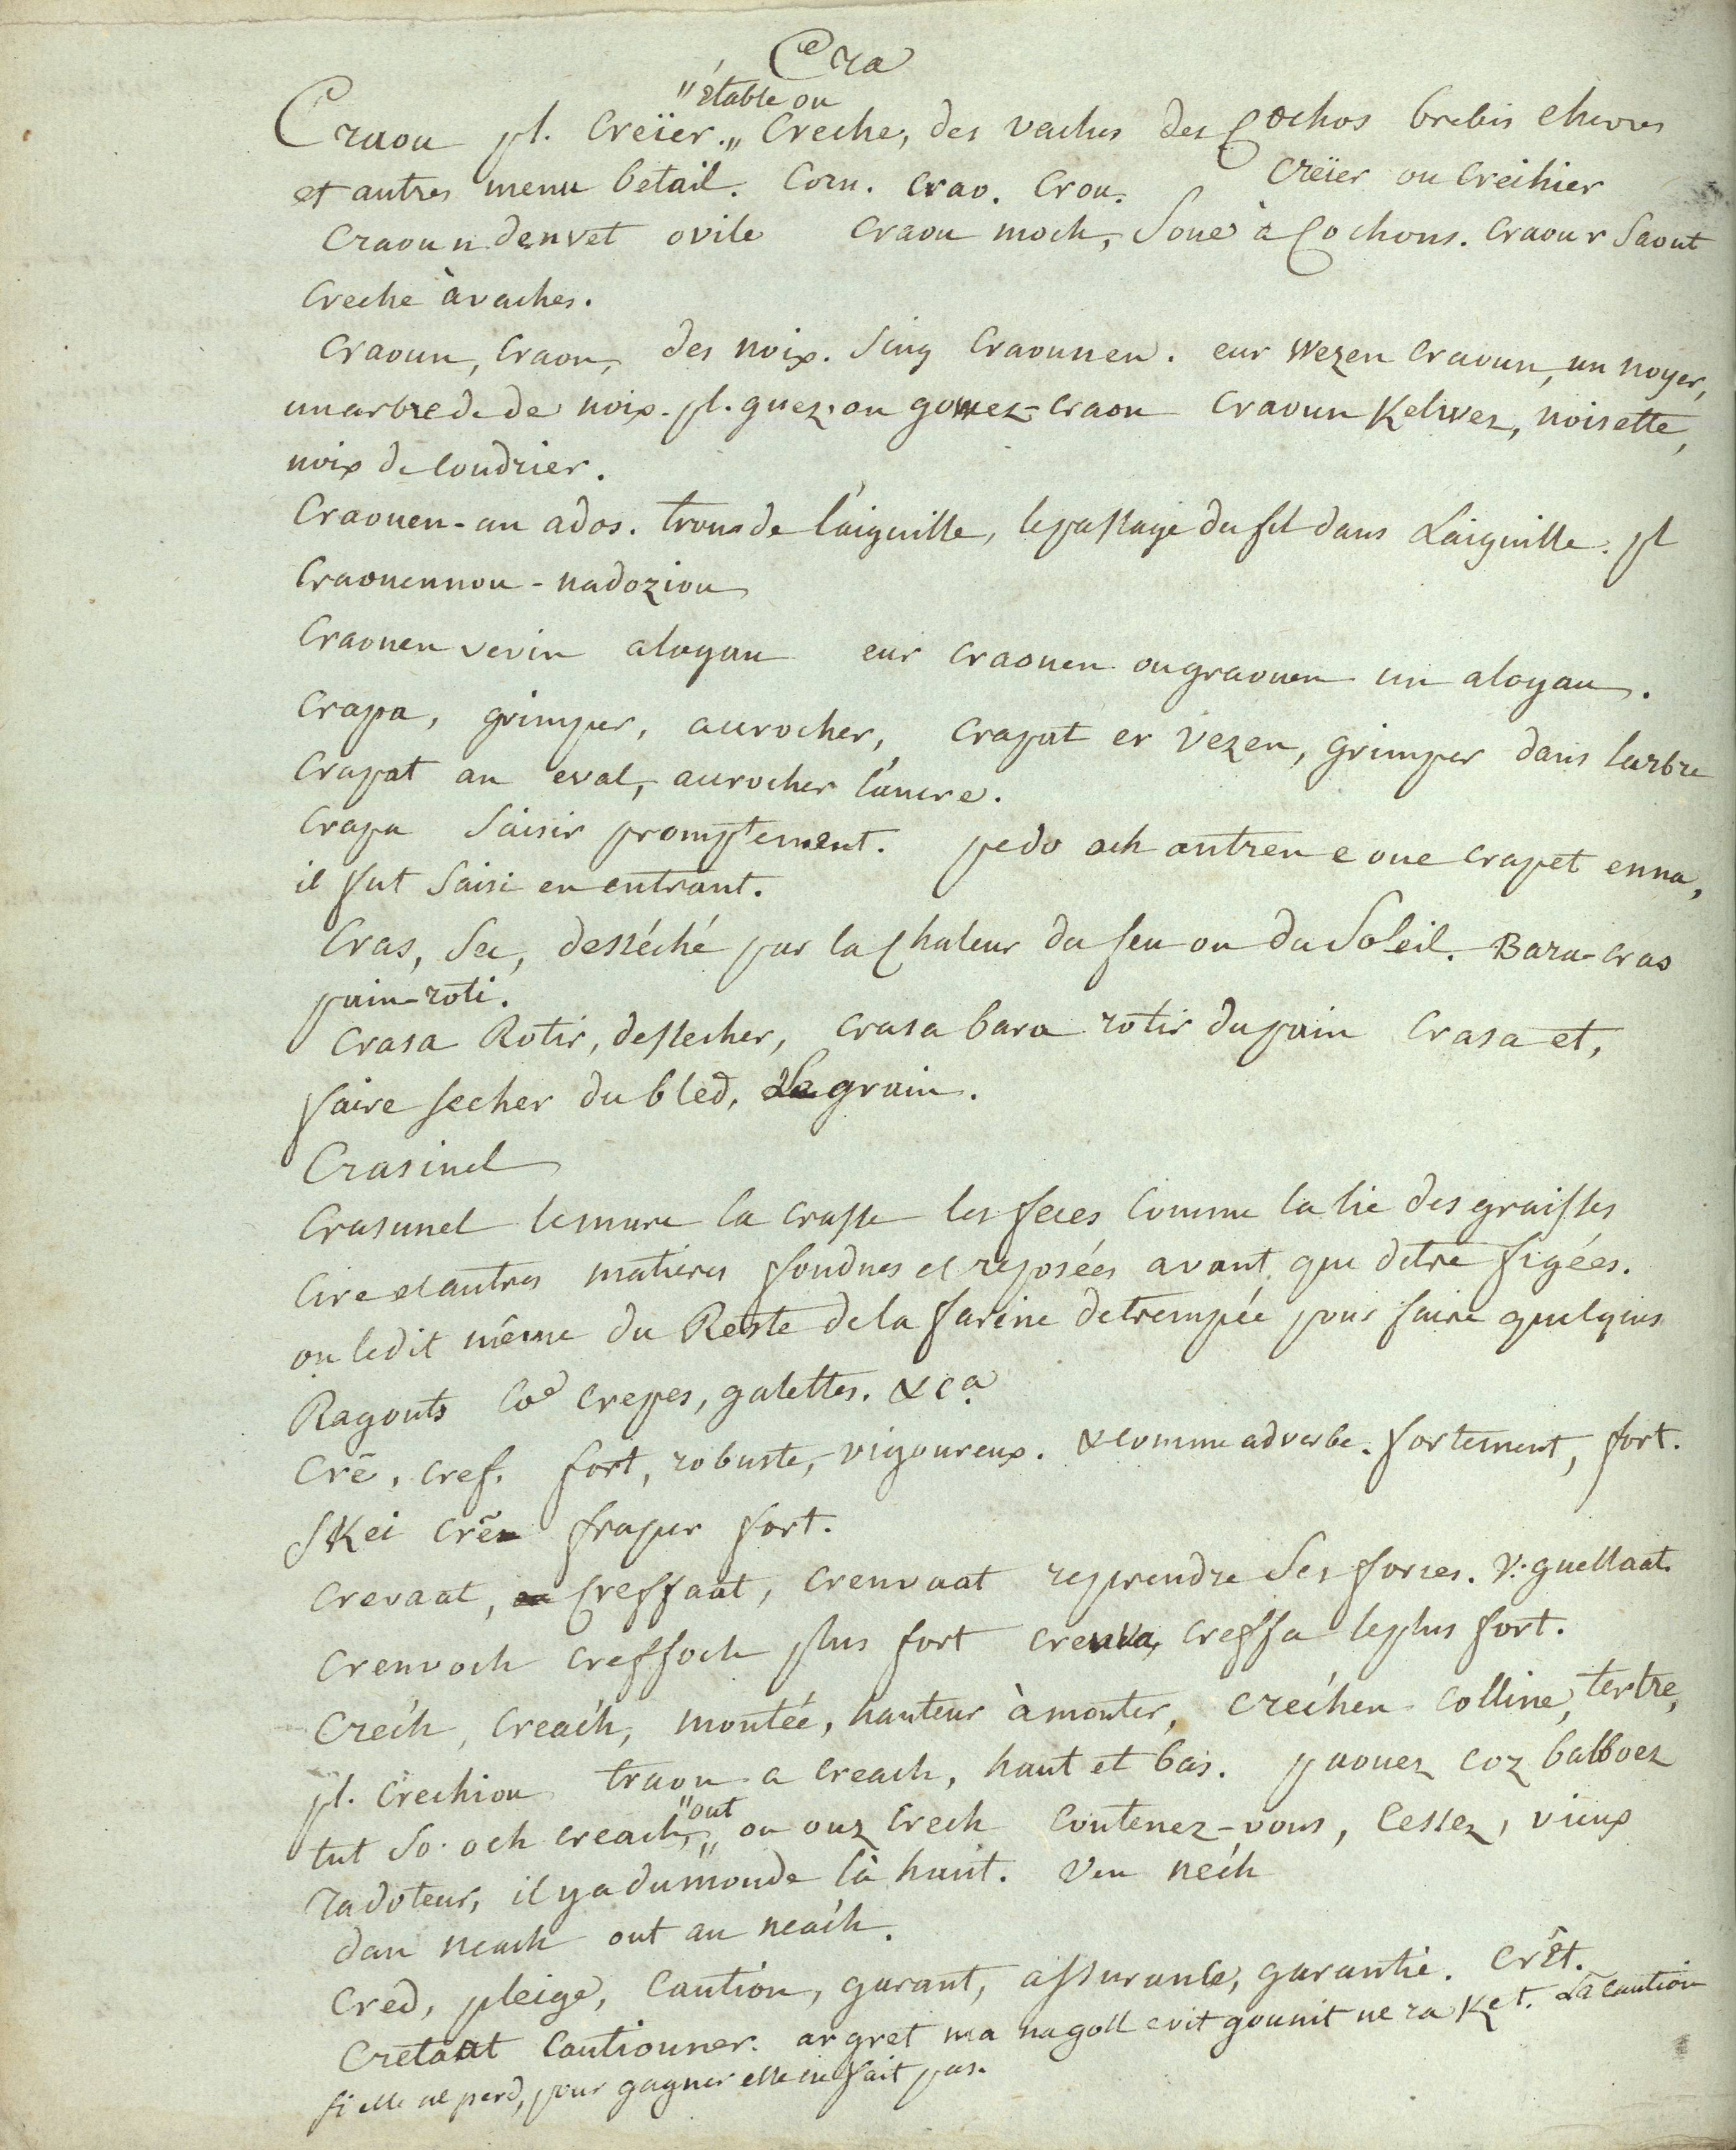 Cra
"étable ou
Craou pl. Creïer." Creche, des vaches des Cochos brebis chevres
et autres menu betail. Corn. Crao. Crou. Creïer ou Creihier
Craou n denvet ovile Craou moch, Soue à Cochons. Craou r Saout
Creche à vaches.
Craoun, Craon, des noix. Sing Craounen. eur wezen Craoun, un noyer,
un arbre de de noix. pl. guez. ou gowez-Craon Craoun Kelvez, noisette,
noix de Coudrier.
Craouen-an ados. trous de l'aiguille, le passage du fil dans L'aiguille. pl
Craouennou-nadoziou
Craouen vevin aloyau eur craouen ou graouen un aloyau.
Crapa, grimper, accrocher, Crapat er vezen, grimper dans l'arbre
Crapat an eval, accrocher l'ancre.
Crapa Saisir promptement. pe do och antren e oue crapet enna,
il fut Saisi en entrant.
Cras, Sec, desséché par la Chaleur du feu ou du Soleil. Bara-cras
pain-roti.
Crasa Rotir, dessecher, crasa bara rotir du pain Crasa et,
faire secher du bled, Le grain.
Crasinel
Crasunel le marc la crasse les feces Comme la lie des graisses
Cire et autres matieres fondues et reposées avant que detre figées.
on le dit même du Reste de la farine detrempée pour faire quelques
Ragouts Coe crepes, galettes. &ca
Crē, cref. fort, robuste, vigoureux. & comme adverbe. fortement, fort.
Skei crē fraper fort.
Crevaat, Creffaat, crenvaat reprendre Ses forces. V. guellaat.
Crenvoch creffoch plus fort crenva, creffa le plus fort.
Créch, Creach, montée, hauteur à monter, créchen Colline, tertre,
pl. Crechiou traou a creach, haut et bas. paouez coz balboez
"out
tut So och creach," ou ouz Crech Contenez-vous, Cessez, vieux
radoteur, il y a du monde là haut. Ven nech
dan neach out an neach.
Cred, pleige, Caution, garant, assurance, garantie. Crêt.
Cretaat Cautionner. ar gret ma na goll evit gounit ne ra Ket. La caution
si elle ne perd, pour gagner elle ne fait pas.